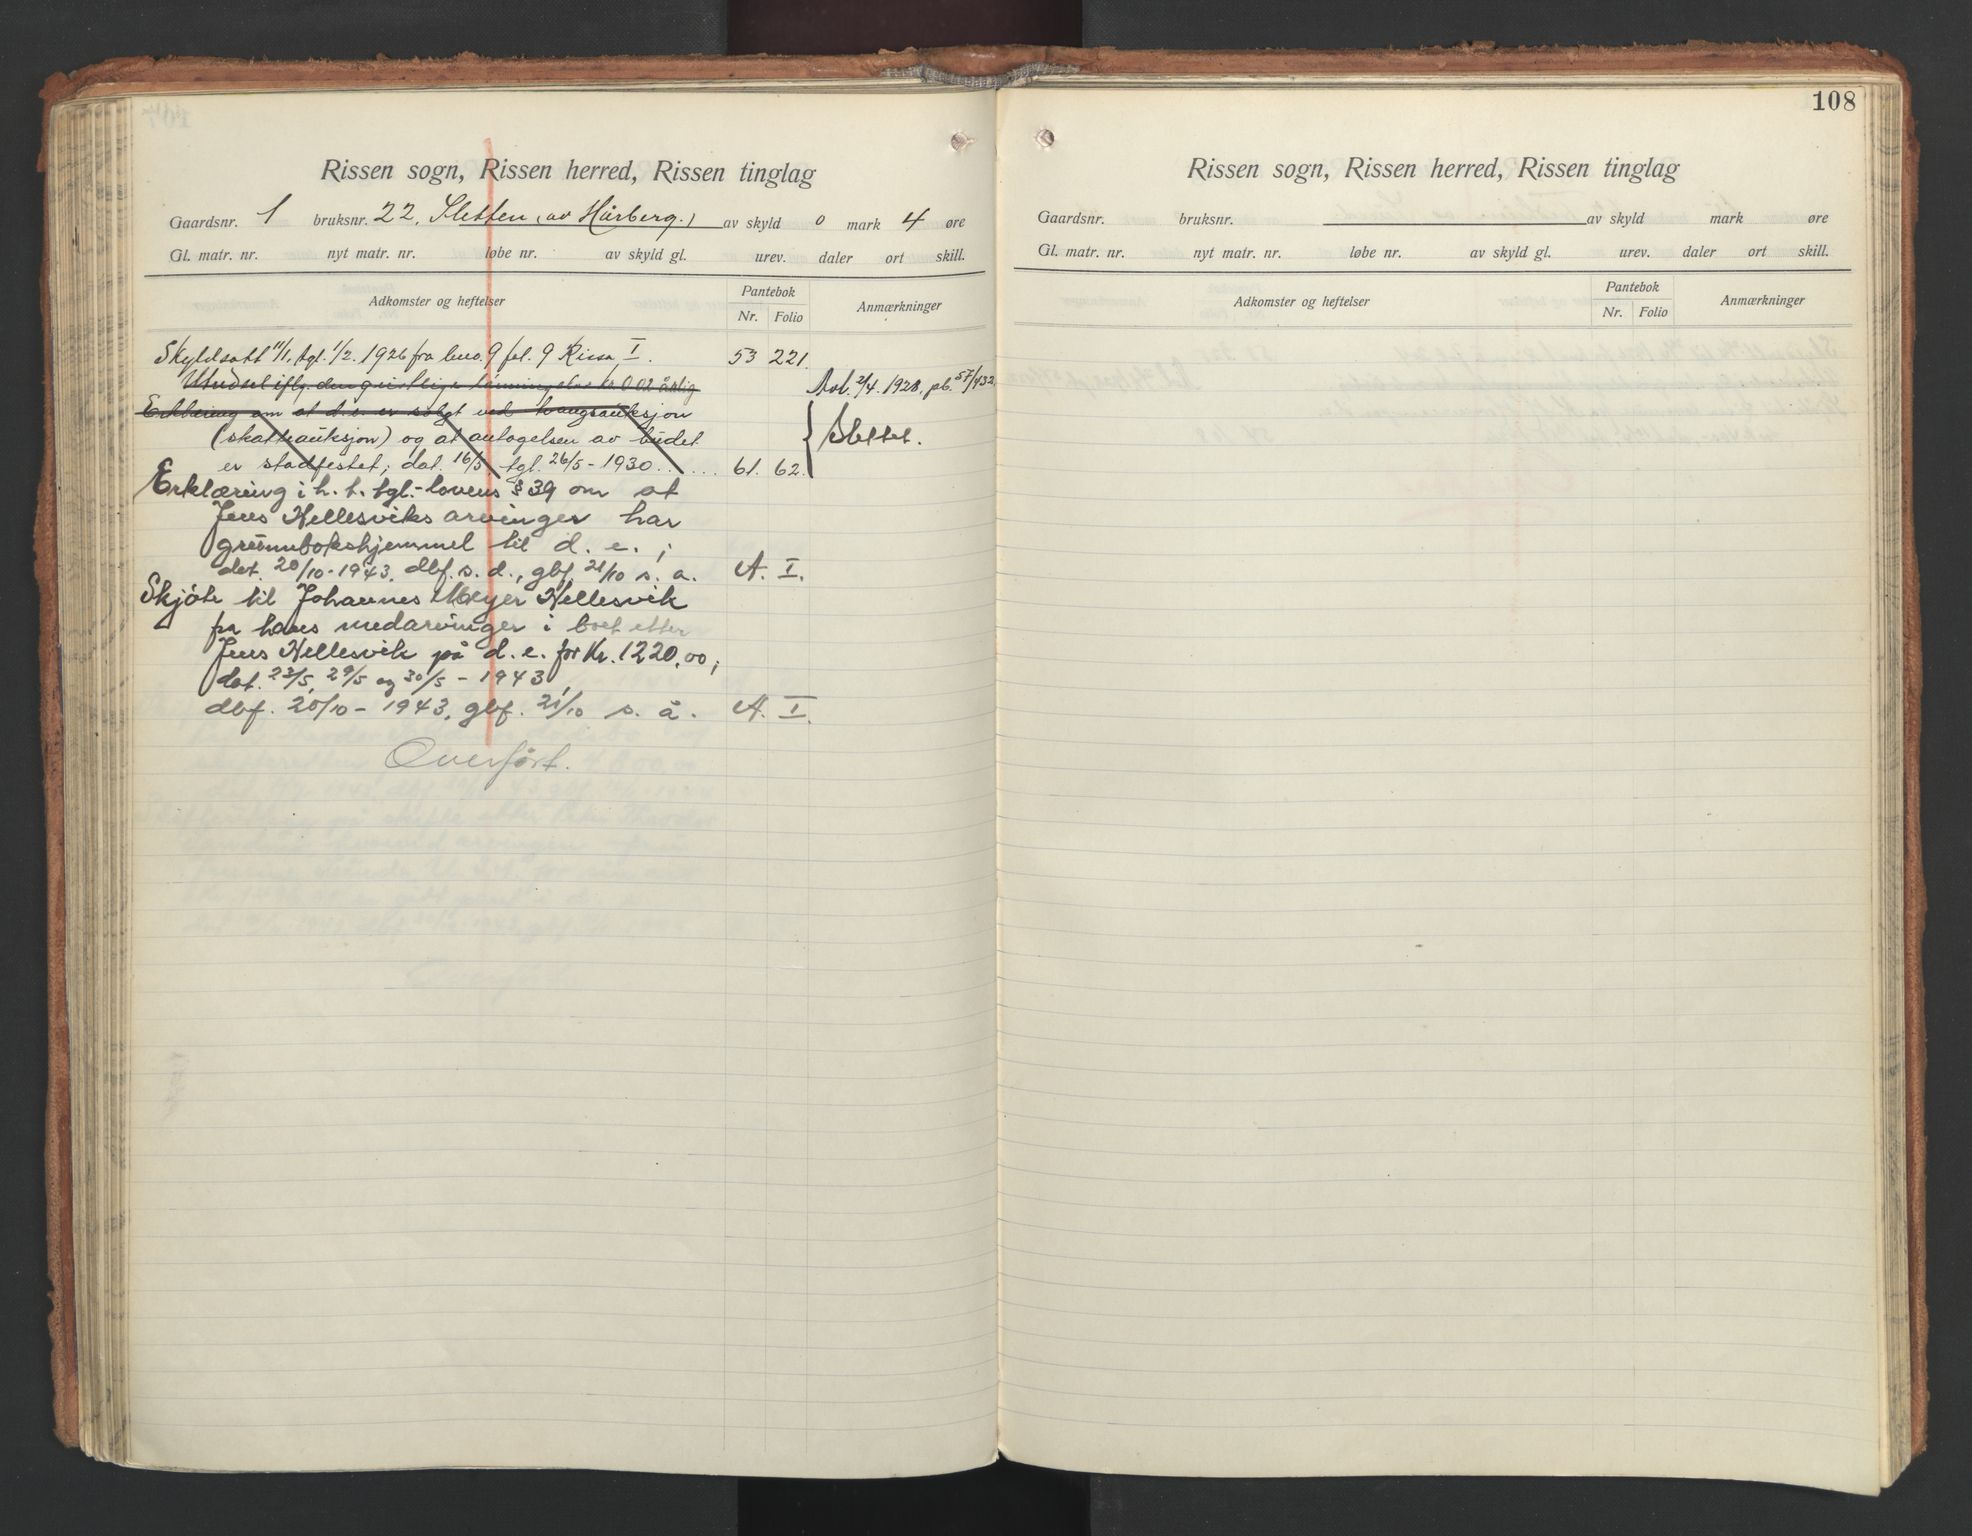 Rissen sogn, Rissen herred, Rissen tinglag
Gaardsnr. 1 bruksnr. 22, Sletten (av Hårberg.) av skyld 0 mark 4 øre
Gl. matr. nr. nyt matr. nr. løbe nr. av skyld gl. urev. daler ort skill.
Adkomster og heftelser Pantebok Anmærkninger
Nr. Folio
Skyldsatt 11/1, tgl. 1/2. 1926 fra bno. 9 fol. 9 Rissa I. 53 221.
Utredsel iflg. den geistlige lønningslov kr. 0.02 årlig Avl. 2/4. 1928. pb. 57/432.
Erklæring om at d. e. er solgt ved tvangsauksjon
(skatteauksjon) og at antagelsen av budet Slettet.
er stadfestet, dat. 16/5 tgl. 26/5 - 1930. 61. 62.
Erklæring i h. t. tgl.-lovens § 39 om at
Jens Hellesviks arvinger har
grunnbokshjemmel til d. e.;
dat. 20/10 - 1943, dbf. s. d., gbf. 21/10 s. a. A. I.
Skjøte til Johannes Meyer Hellesvik
fra hans medarvinger i boet etter
Jens Hellesvik på d. e. for Kr. 1220,00;
dat. 23/5, 29/5 og 30/5 - 1943,
dbf. 20/10 - 1943, gbf. 21/10 s. å. A. I.
Overført.
108
Rissen sogn, Rissen herred, Rissen tinglag
Gaardsnr. bruksnr. av skyld mark øre
Gl. matr. nr. nyt matr. nr. løbe nr. av skyld gl. urev. daler ort skill.
Adkomster og heftelser Pantebok Anmærkninger
Nr. Folio